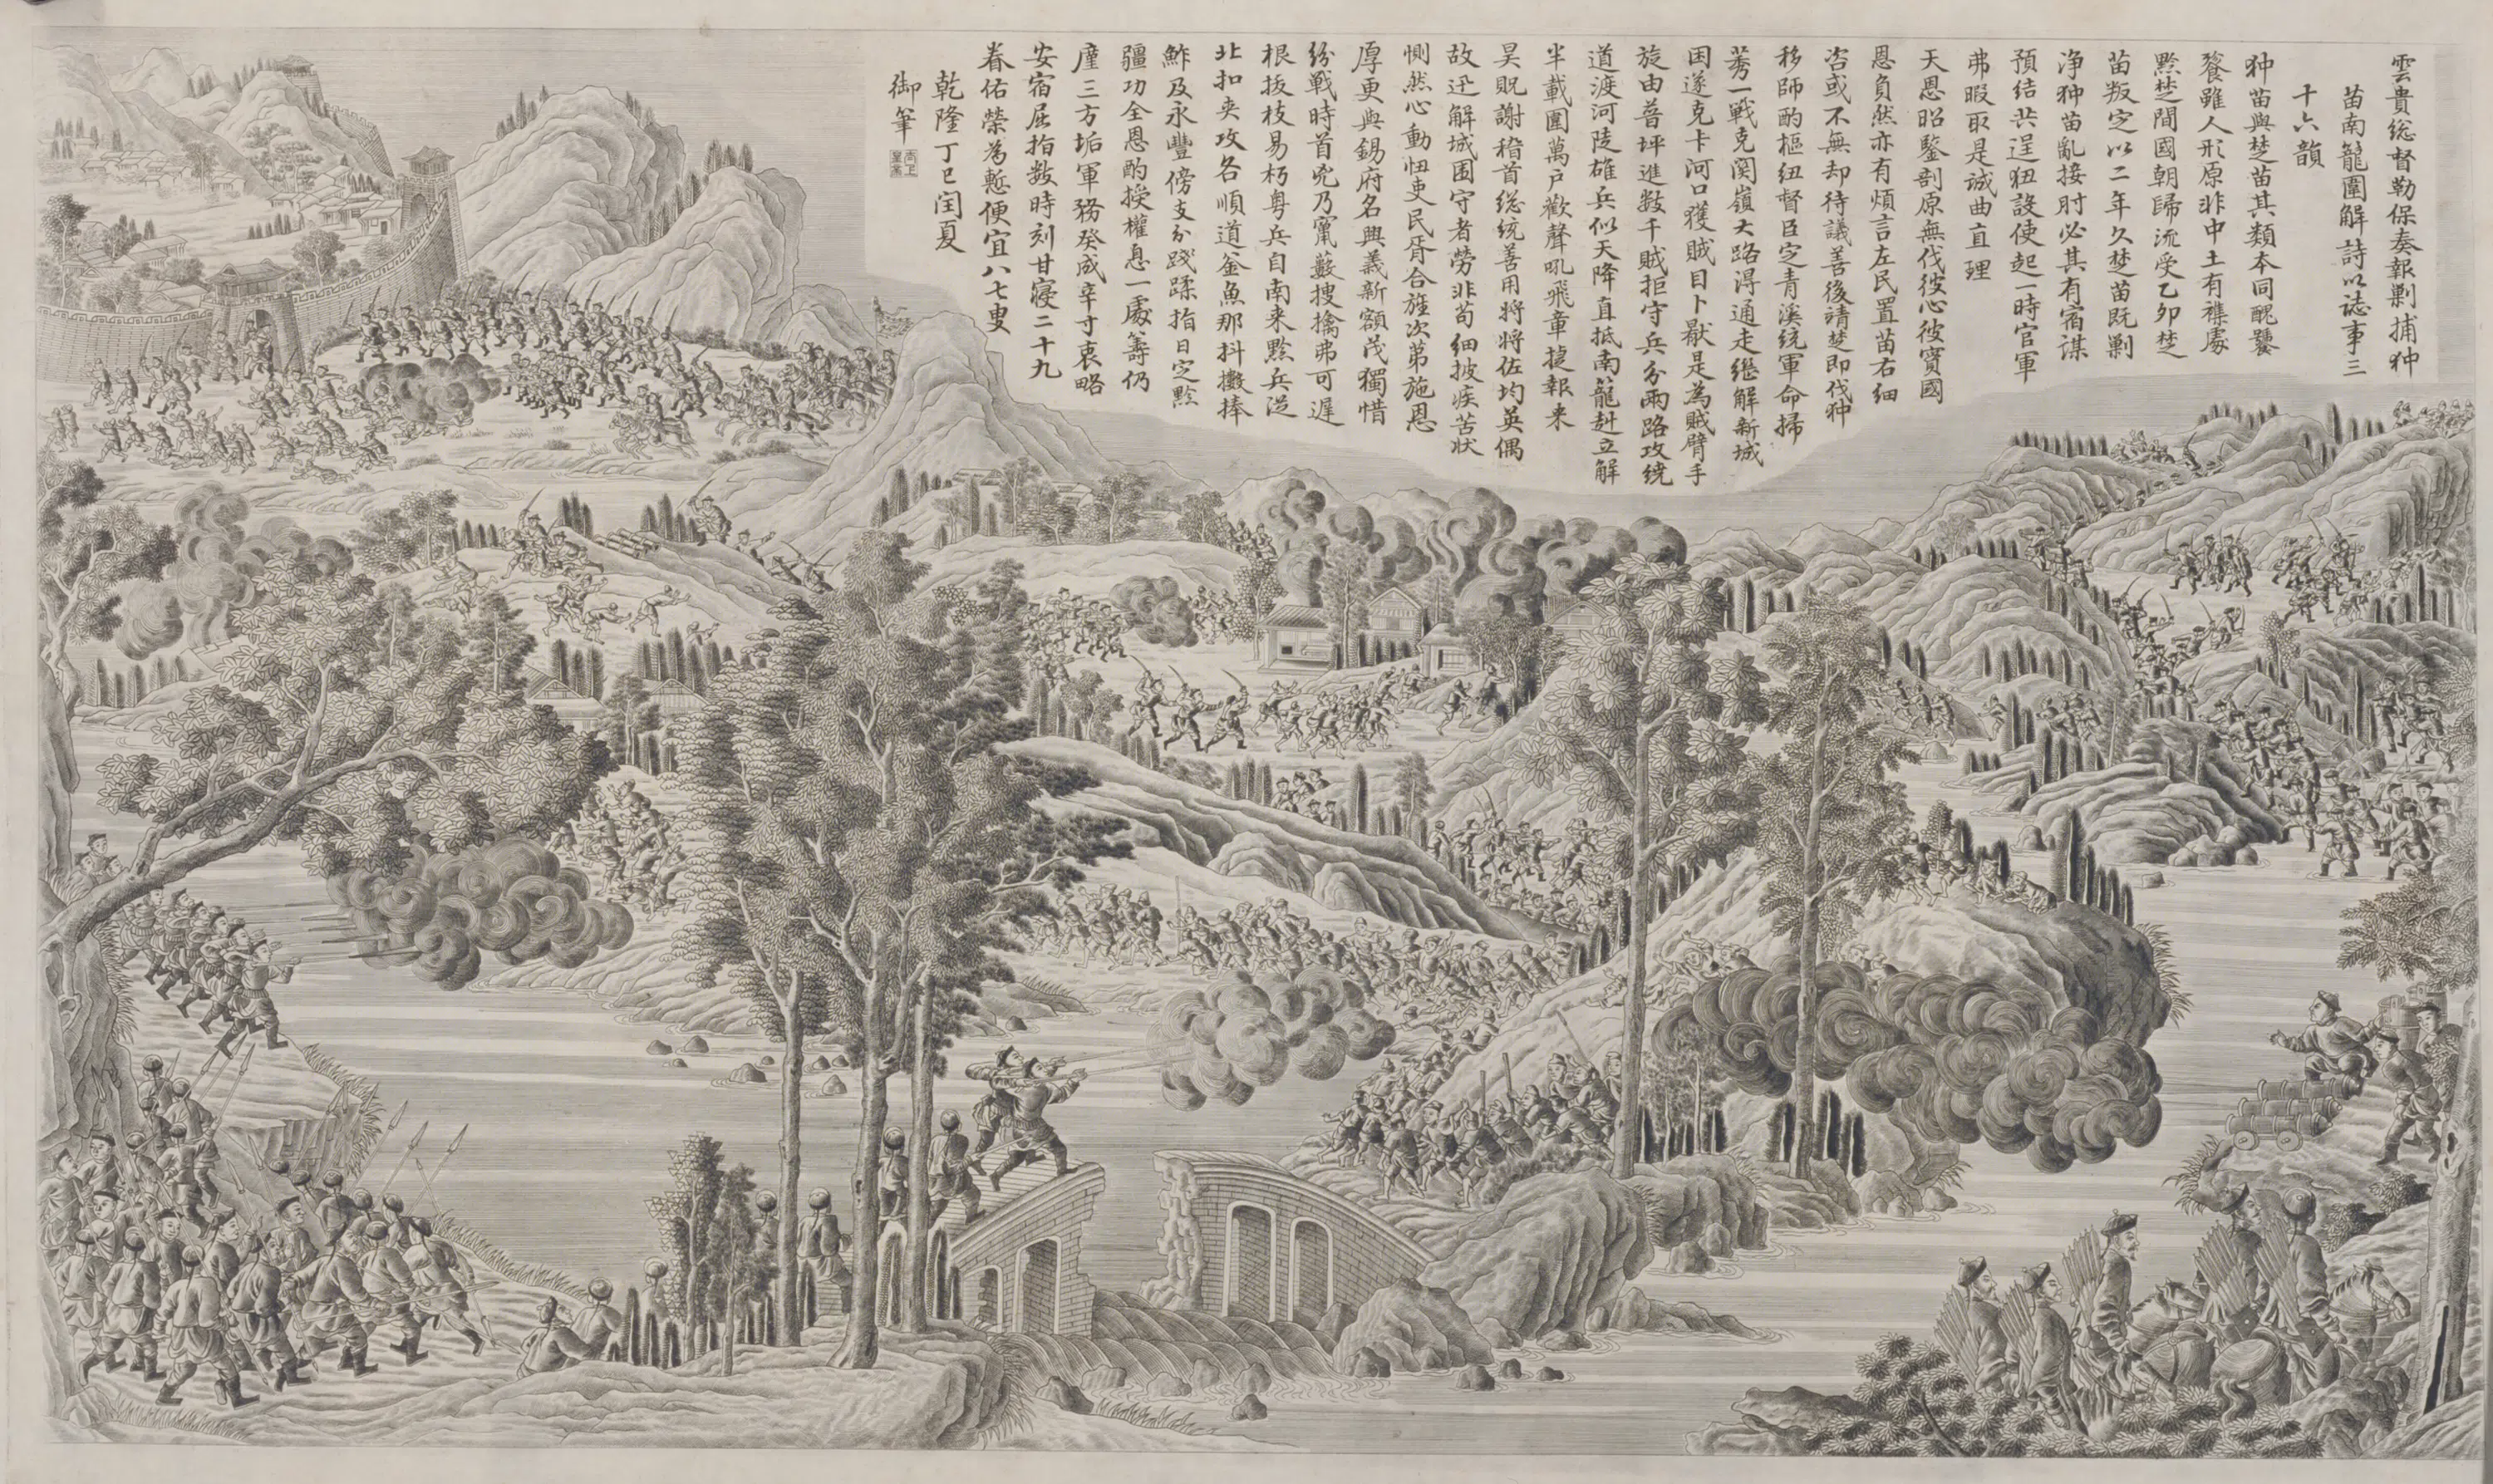 雲貴総督勒保奏報剿捕狆
苗南籠圍解詩以誌事三
十六韻
狆苗與楚苗其類本同醜饕
餮雖人形原非中土有襍處
黔楚間國朝歸流受乙卯楚
苗叛定以二年久楚苗既剿
净狆苗亂接肘必其有宿謀
預結共逞狃設使起一時官軍
弗暇取是誠曲直理
天恩昭鑒剖原無伐彼心彼實國
恩負然亦有煩言左民置苗右細
咨或不無却待議善後靖楚即伐狆
移師酌樞紐督臣定青溪統軍命掃
莠一戰克関嶺大路淂通走継解新城
囯遂克卡河口獲賊目卜厭是為賊臂手
旋由普坪進数千賊拒守兵分兩路攻繞
道渡河陡雄兵似天降直抵南籠赳立解
半載圍萬戶歡聲吼飛章捷報来
昊貺謝稽首総統善用将将佐均英偶
故迅解城围守者勞非苟細披疾苦状
惻然心動忸吏民胥合旌次第施恩
厚更與錫府名興義新額茂獨惜
紛戰時首兇乃竄藪搜擒弗可遲
根拔枝易朽粤兵自南来黔兵従
北扣夾攻各順道釜魚那抖擻捧
鮓及永豐傍支分踐蹂指日定黔
疆功全恩酌授權息一處籌仍
廑三方垢軍務癸成辛寸衷略
安宿屈指数時刻甘寢二十九
眷佑榮為慙便宜八七叟
乾隆丁巳閏夏
御筆